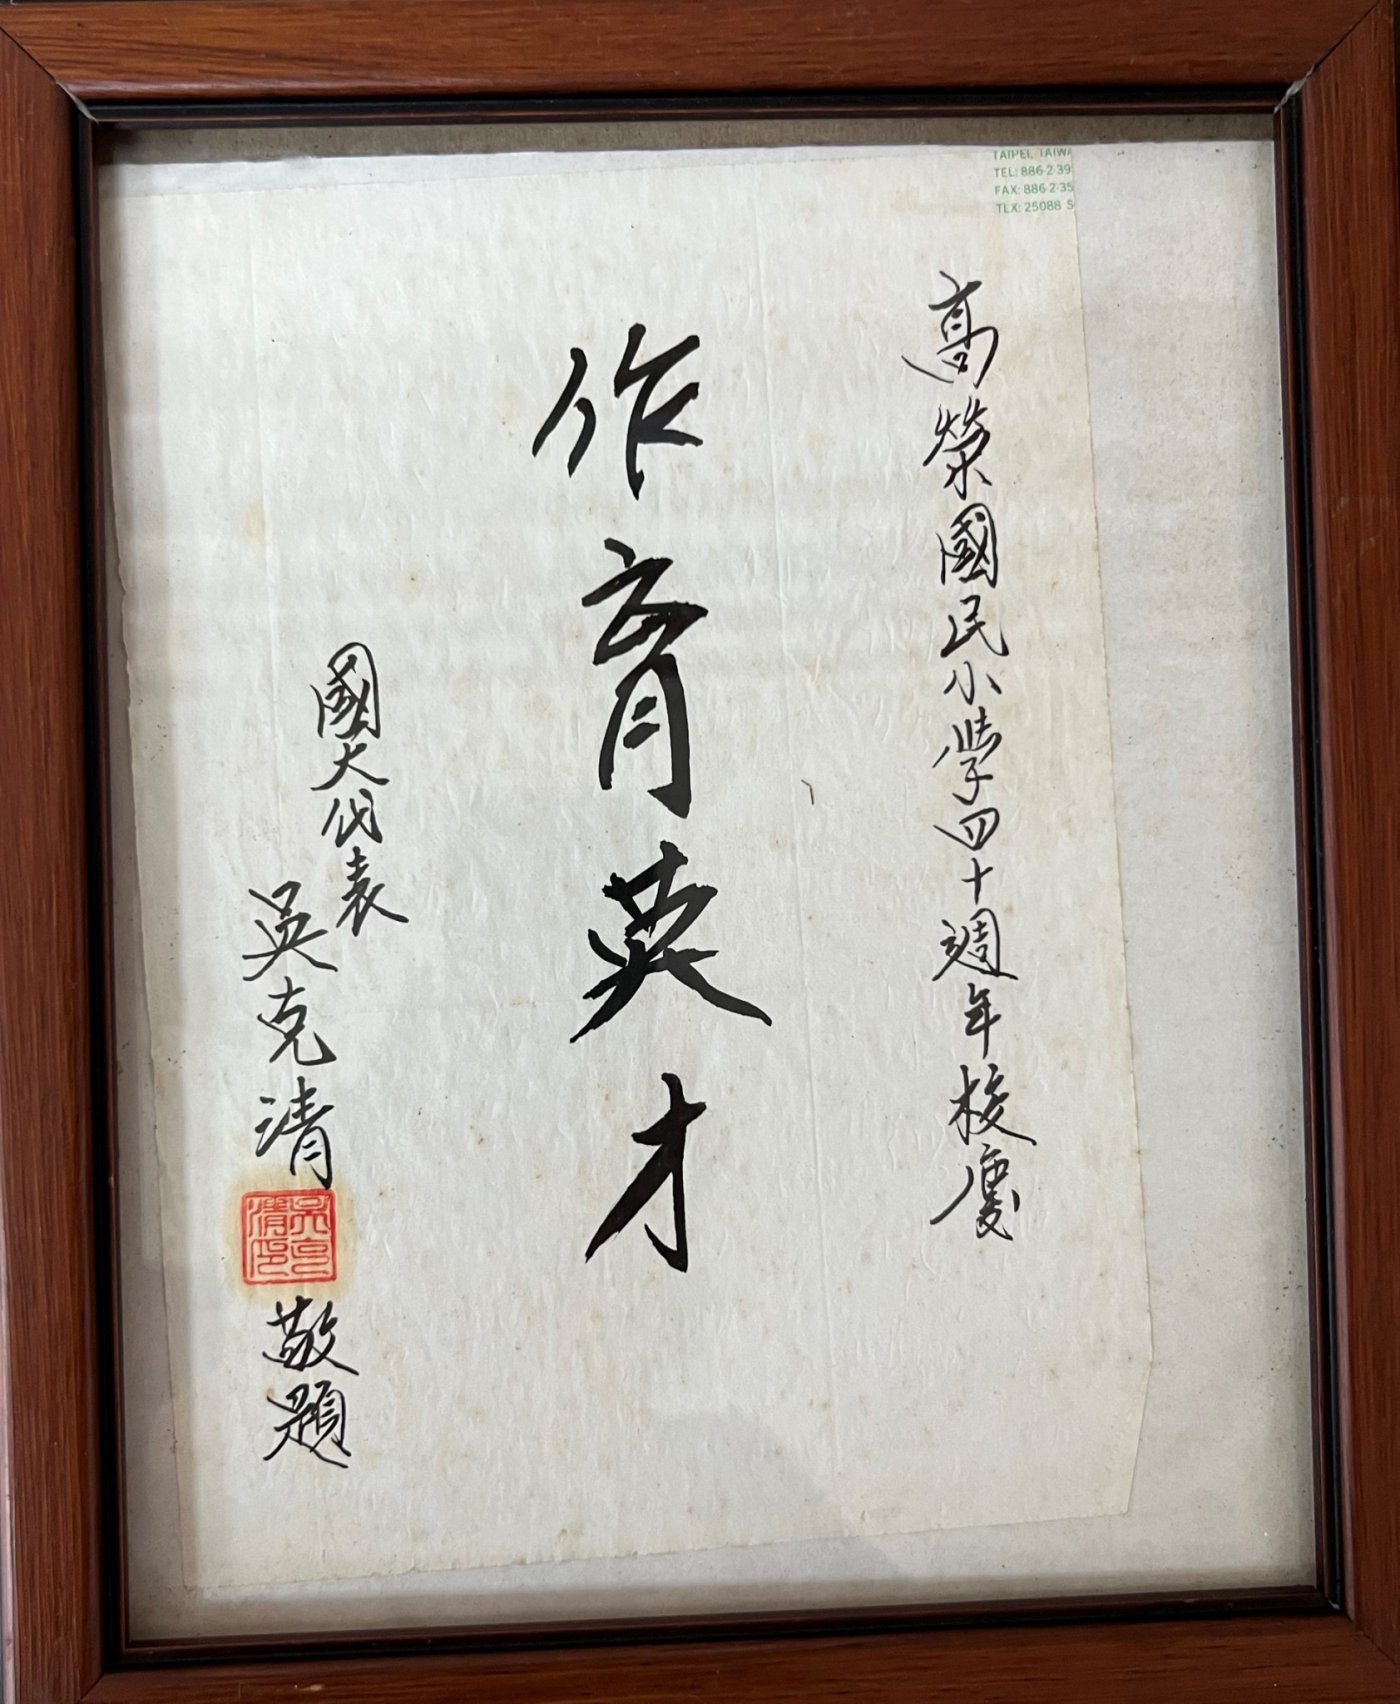 TAIPEI, TAIWA
TEL: 886-2-39
FAX: 886-2-35
TLX: 25088 S
高榮國民小學四十週年校慶
作育英才
國大代表
吳克清
敬題